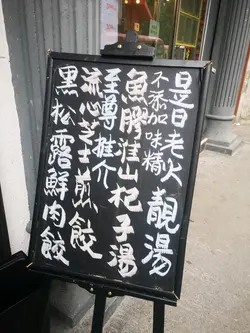 是日老火靚湯
不添加味精
魚腎淮山杞子湯
至尊推介
流心芝士煎餃
黑松露鮮肉餃